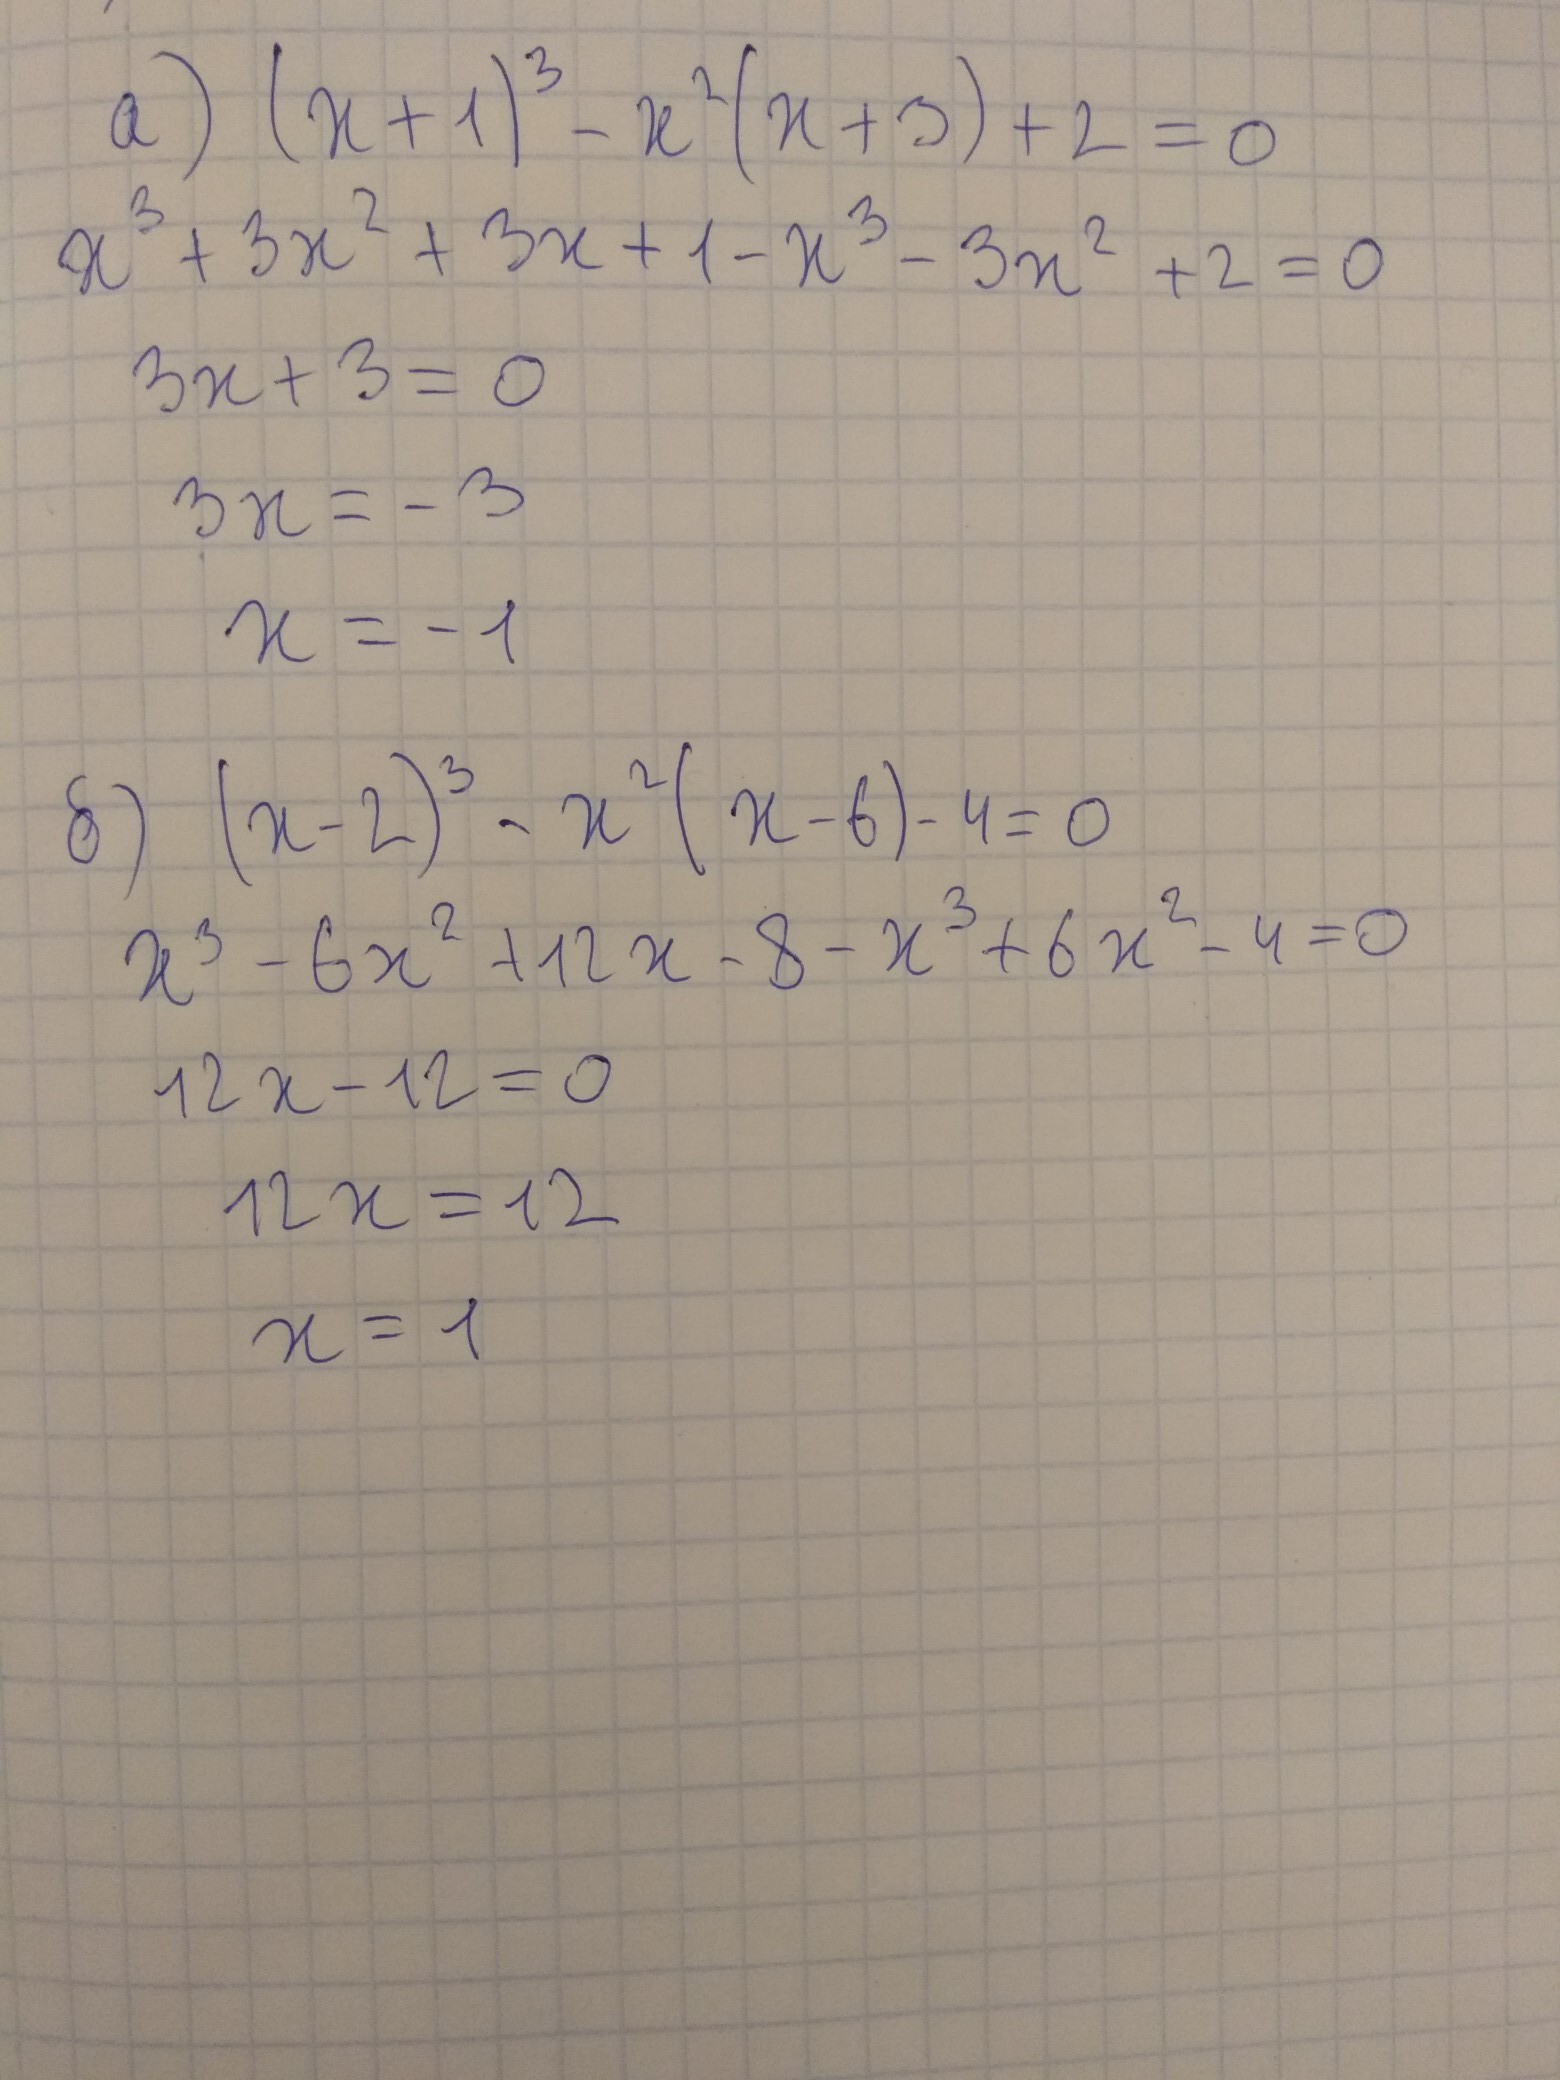 а) (x+1)³ - x²(x+3)+2=0
x³+3x²+3x+1-x³-3x²+2=0
3x+3=0
3x=-3
x=-1
б) (x-2)³ - x²(x-6)-4=0
x³-6x²+12x-8-x³+6x²-4=0
12x-12=0
12x=12
x=1